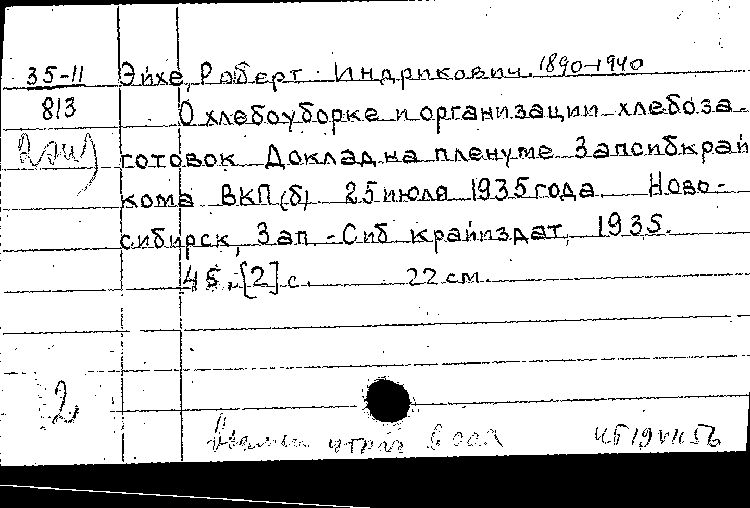 35-11 Эйхе, Роберт Индрикович. 1890-1940
813 О хлебоуборке и организации хлебоза-
2 экз готовок. Доклад на пленуме Запсибкрай
кома ВКП(б) 25 июля 1935 года. Ново-
сибирск, Зап.-Сиб. крайиздат, 1935.
45, [2] с. 22 см.
2